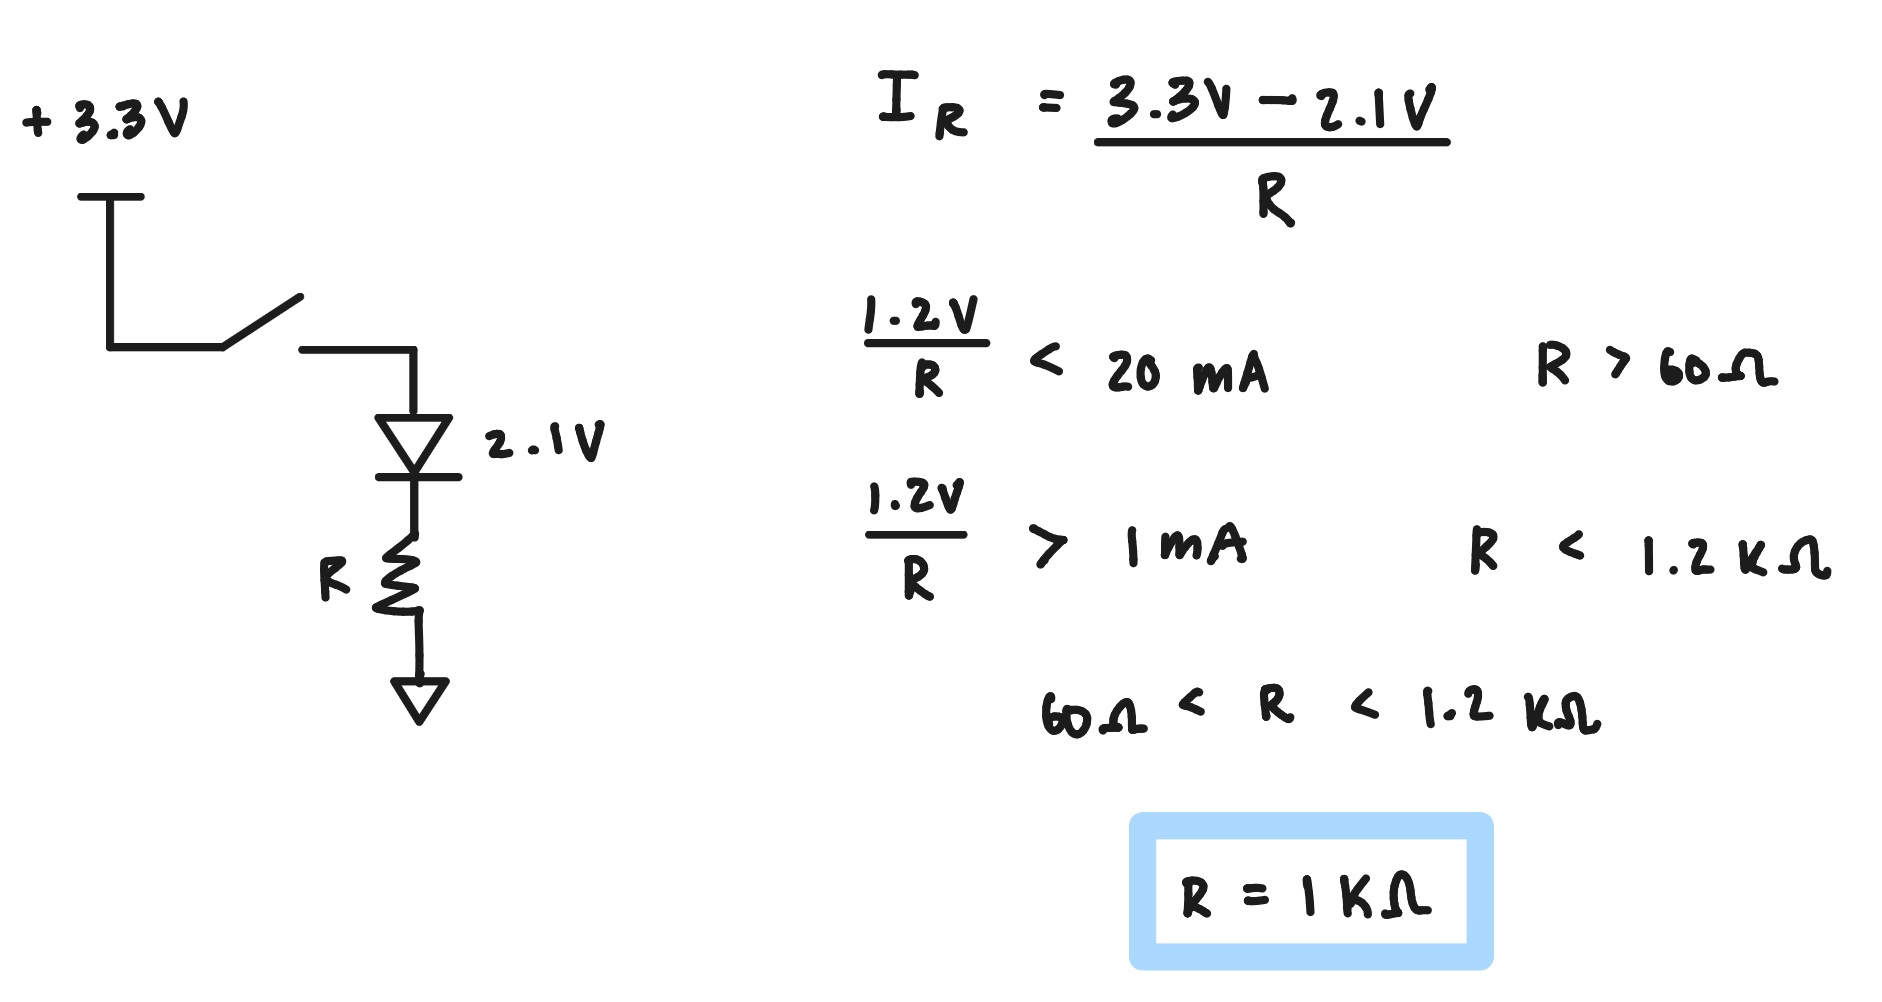 + 3.3V
2.1V
R
I_R = 3.3V - 2.1V
R
1.2V
R
< 20 mA R > 60Ω
1.2V
R
> 1mA R < 1.2KΩ
60Ω < R < 1.2 KΩ
R = 1 KΩ